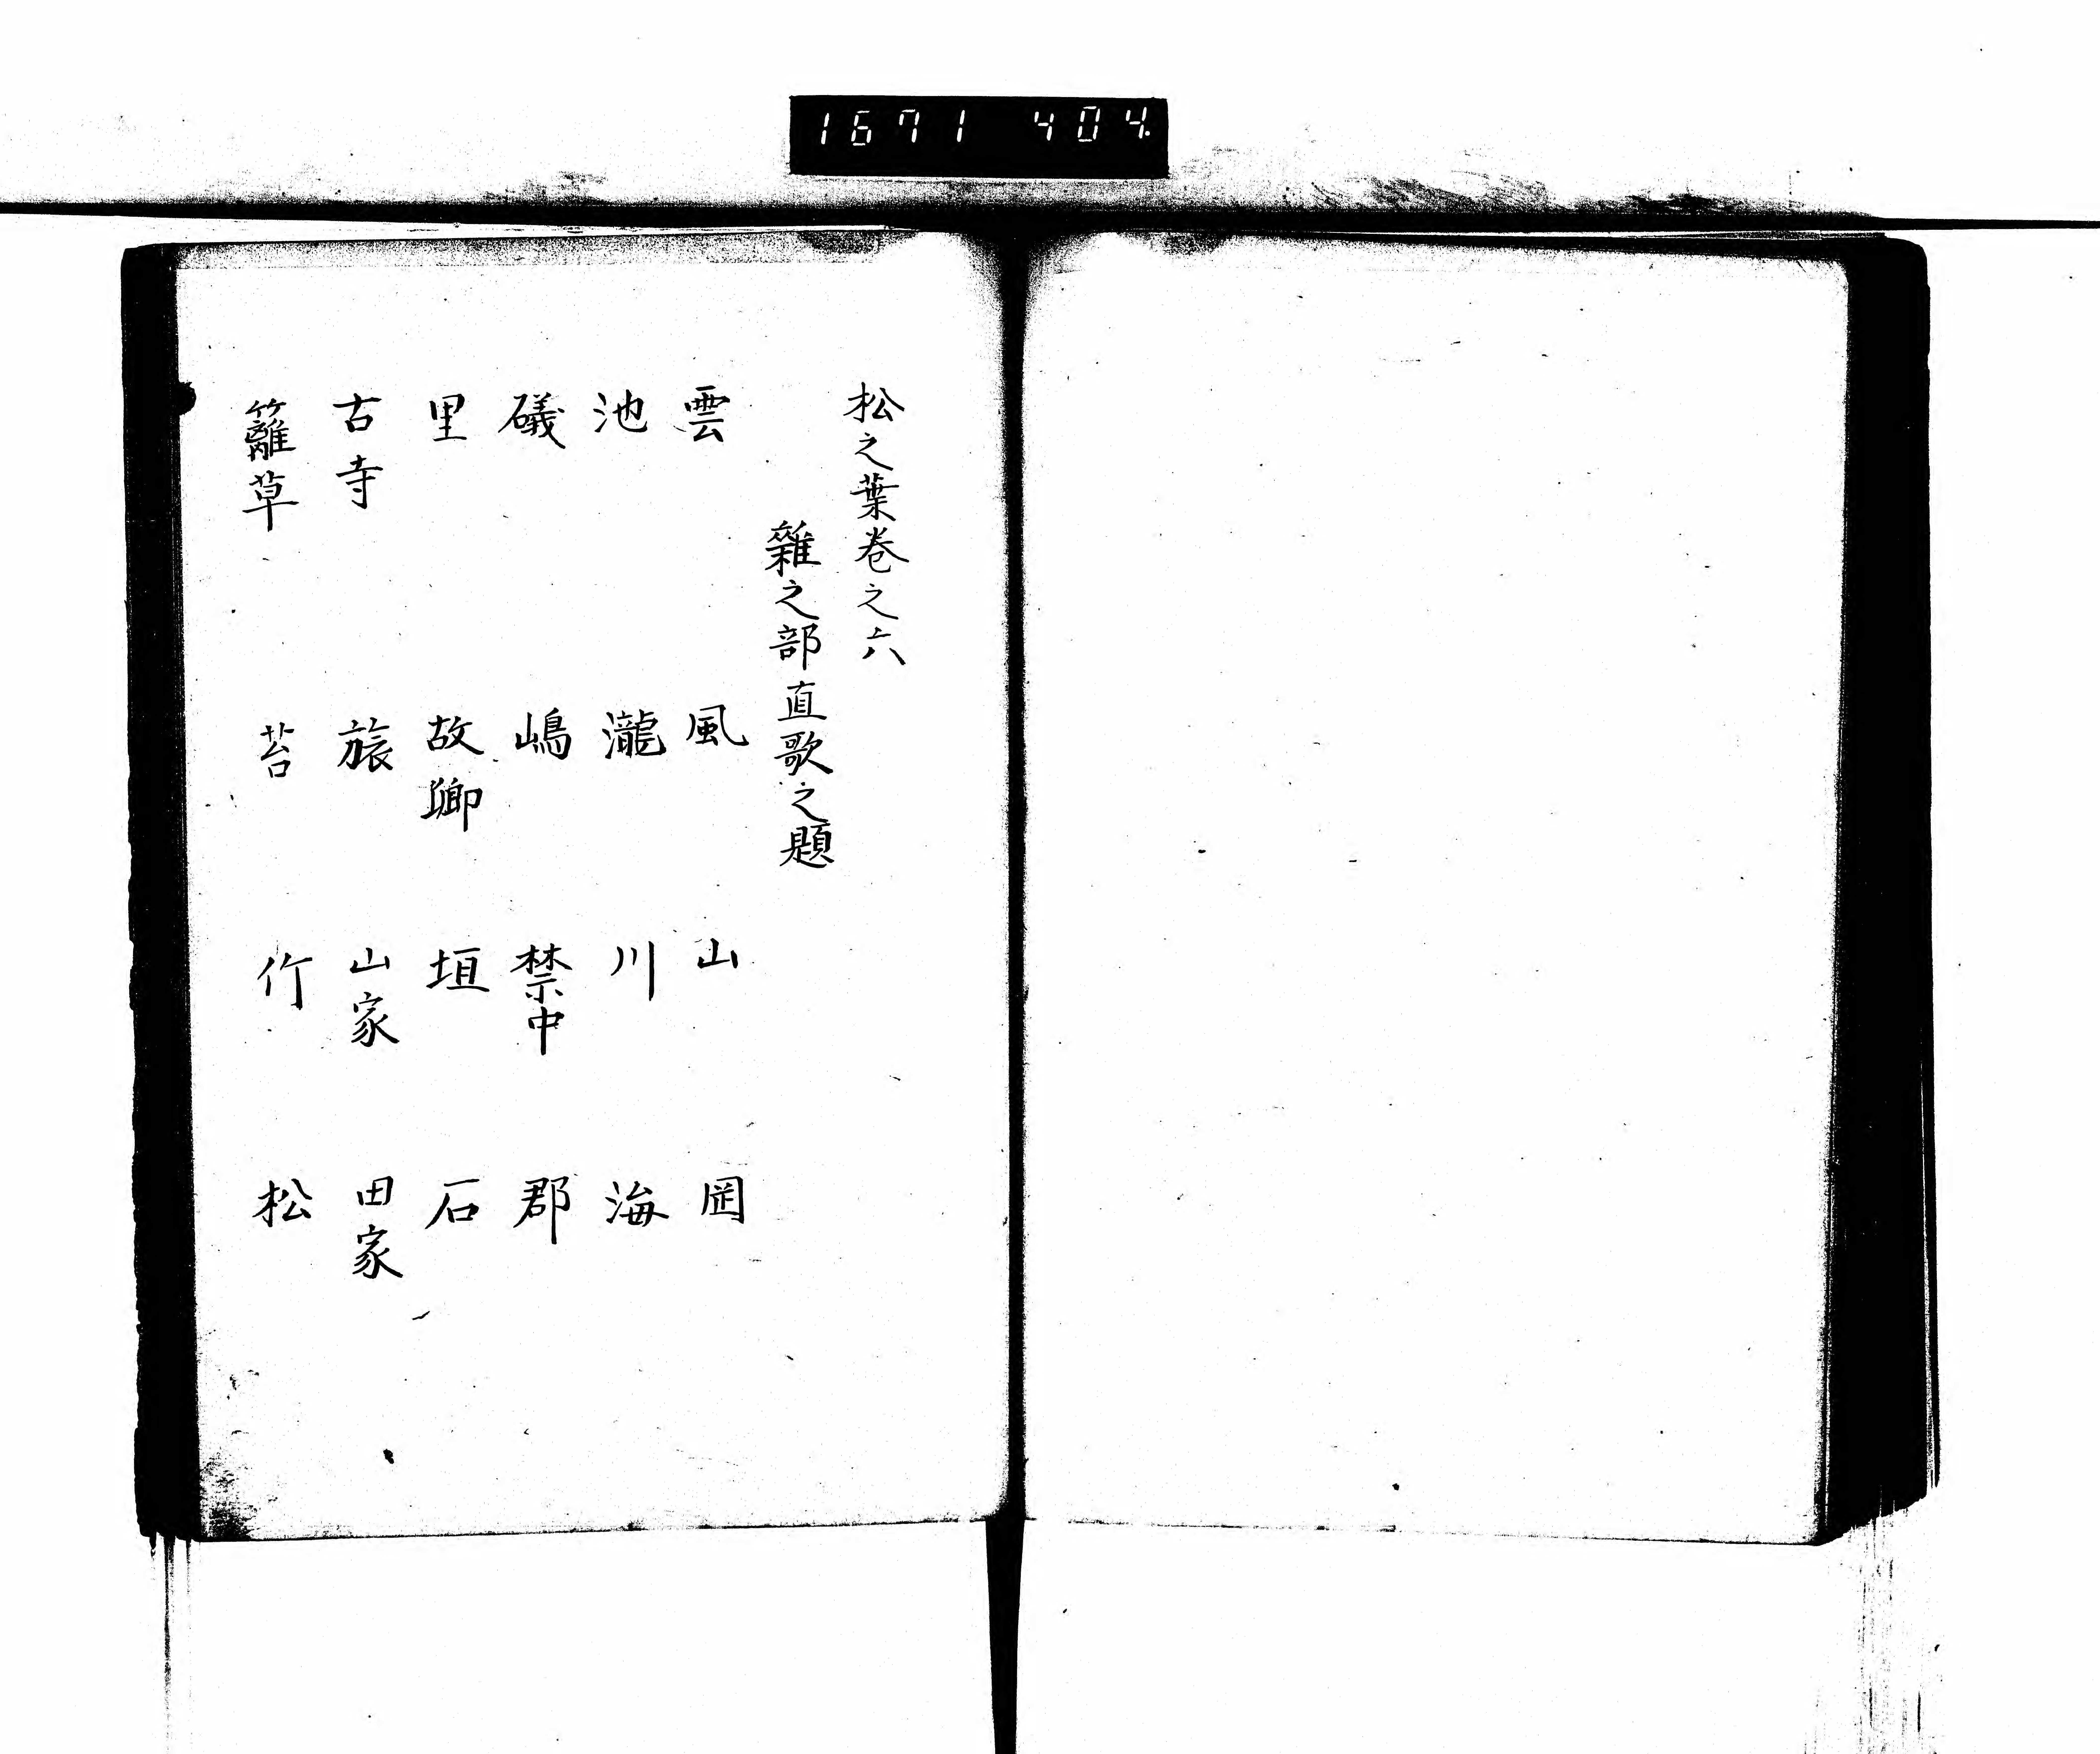 1671 404.
松之葉卷之六
雜之部直歌之題
雲 風 山 岡
池 瀧 川 海
礒 嶋 禁中 郡
里 故郷 垣 石
古寺 旅 山家 田家
籬草 苔 竹 松